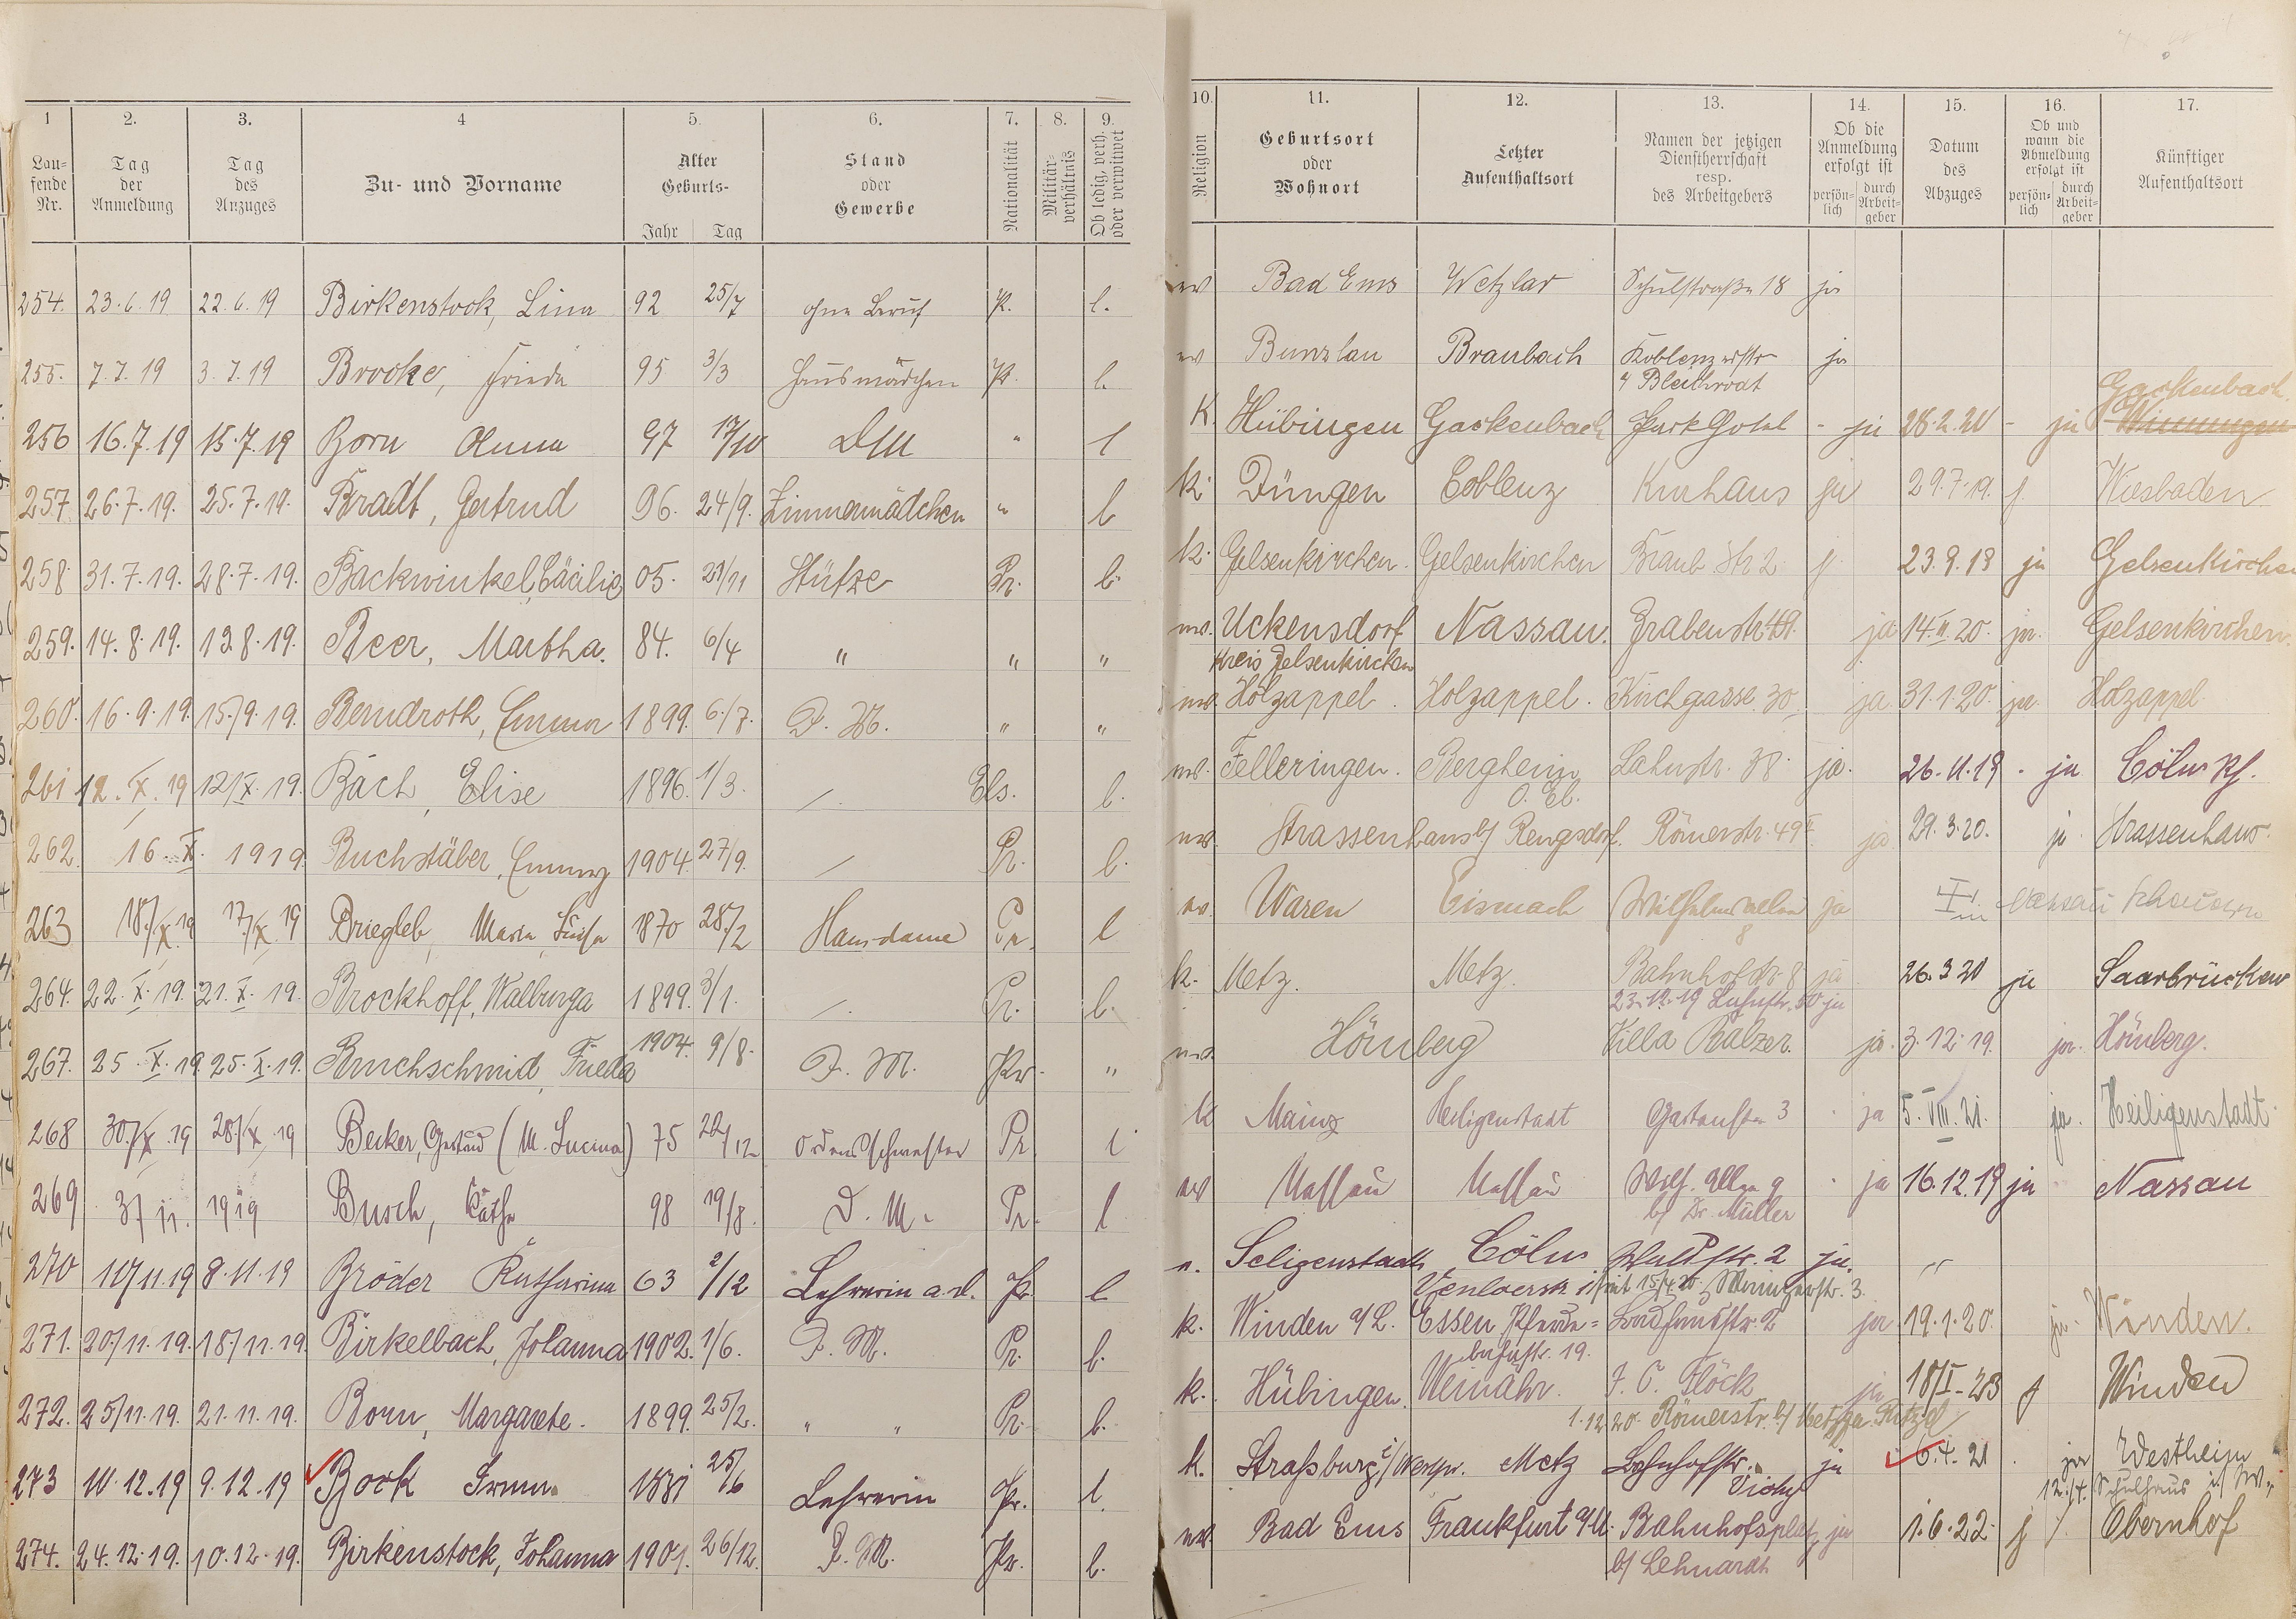 1 2. 3. 4 5. 6. 7. 8. 9. 10. 11. 12. 13. 14. 15. 16. 17.
Lau-
fende
Nr.
Tag
der
Anmeldung
Tag
des
Anzuges
Zu- und Vorname
Alter
Geburts-
Jahr Tag
Stand
oder
Gewerbe
Nationalität
Militär-
verhältnis
Ob ledig, verh.
oder verwitwet
Religion
Geburtsort
oder
Wohnort
Letzter
Aufenthaltsort
Namen der jetzigen
Dienstherrschaft
resp.
des Arbeitgebers
Ob die
Anmeldung
erfolgt ist
persön-
lich
durch
Arbeit-
geber
Datum
des
Abzuges
Ob und
wann die
Abmeldung
erfolgt ist
persön-
lich
durch
Arbeit-
geber
Künftiger
Aufenthaltsort
254. 23.6.19 22.6.19 Birkenstock, Lina 92 25/7 ohne Beruf Pr. l. ev Bad Ems Wetzlar Schulstraße 18 ja
255. 7.7.19 3.7.19 Brocke, Frieda 95 3/3 Hausmädchen Pr. l. ev Bunzlau Braubach Koblenzerstr ja
Gackenbach
256 16.7.19 15.7.19 Born Anna 97 17/10 DM " l K. Hübingen Gackenbach Park Hotel - ja 28.2.20 - ja
257 26.7.19. 25.7.19. Bradt, Gertrud 96. 24/9. Zimmermädchen " l k. Düngen Coblenz Kurhaus ja 29.7.19. j. Wiesbaden
258 31.7.19. 28.7.19. Backwinkel, Cäcilie 05. 21/11 Stütze Pr. l. k. Gelsenkirchen. Gelsenkirchen Braub. Str 2 j. 23.9.19 ja Gelsenkirchen
259. 14.8.19. 13.8.19. Beer, Martha. 84. 6/4 " " " ev. Uckensdorf Nassau. Grabenstr. 49. ja 14.II.20. ja. Gelsenkirchen.
Kreis Gelsenkirchen
260. 16.9.19. 15./9.19. Bendroth, Emma 1899. 6./7. D. M. " " ev. Holzappel. Holzappel. Kirchgasse 30 ja. 31.1.20. ja. Holzappel
261 12.X.19 12/X.19. Bach, Elise 1896. 1/3. /. Els. l. ev. Felleringen. Bergheim Lahnstr. 38. ja. 26.11.19 . ja Cöln
O. El.
262. 16.X. 1919. Buchstäber, Emmy 1904. 27/9. / Pr. l. ev. Strassenhaus b/ Rengsdorf. Römerstr. 49 ja 29.3.20. ja Strassenhaus.
263 18./X.19 17/X.19 Briegleb, Maria Luise 1870 28./2 Hausdame Pr. l ev. Waren Eisenach Wilhelmsallee ja Nassau
8
264. 22.X.19. 21.X.19. Brockhoff, Walburga 1899. 3/1. /. Pr. l. k. Metz. Metz. Bahnhofstr. 8 ja 26.3 20 ja Saarbrücken
23.12.19 Lahnstr. 50 ja
267. 25.X.19. 25.X.19. Bruchschmid, Frieda 1904. 9/8. D. M. Pr. " ev. Hömberg Villa Balzer. ja. 3.12.19. ja. Hömberg.
268 30./X.19 28./X.19 Becker, Gertrud (M. Lucina) 75 22/12 Ordensschwester Pr l k Mainz Heiligenstadt Gartenstr 3 . ja 5.VIII.21. ja. Heiligenstadt
269 3/11. 1919 Busch, Käthe 98 19/8. D. M. Pr. l ev Nassau Nassau Wilh. Allee 9 . ja 16.12.19 ja Nassau
b/ Dr. Müller
270 10/11.19 8.11.19 Bröder Katharina 63 2/12 Lehrerin a.d. Pr l Seligenstadt Cöln Wallstr. 2 ja. "
Venloerstr. seit 15/4.20. Wernigerstr. 3.
271. 20./11.19. 18./11.19. Birkelbach, Johanna 1902. 1/6. D. M. Pr. l. k. Winden a/L. Essen, Pferde= ja 19.1.20. ja. Winden.
bahnstr. 19.
272. 25/11.19. 21.11.19. Born, Margarete. 1899. 25/2. " " Pr. l. k. Hübingen. Weinähr. J. C. Flöck ja 18/I-23 j Winden
1.12.20. Römerstr. b/ Metzger
273 10.12.19 9.12.19 Bock Irma 1881 25/6 Lehrerin Pr. l. k. Straßburg i/Westpr. Metz Bahnhofstr. ja 6.4.21 . ja Westheim
Vichy 12./4. Schulhaus i/ W.
274. 24.12.19. 10.12.19. Birkenstock, Johanna 1901. 26/12. D. M. Pr. l. ev. Bad Ems Frankfurt a/M. Bahnhofsplatz ja 1.6.22. j /. Obernhof
b/ Lehnardt